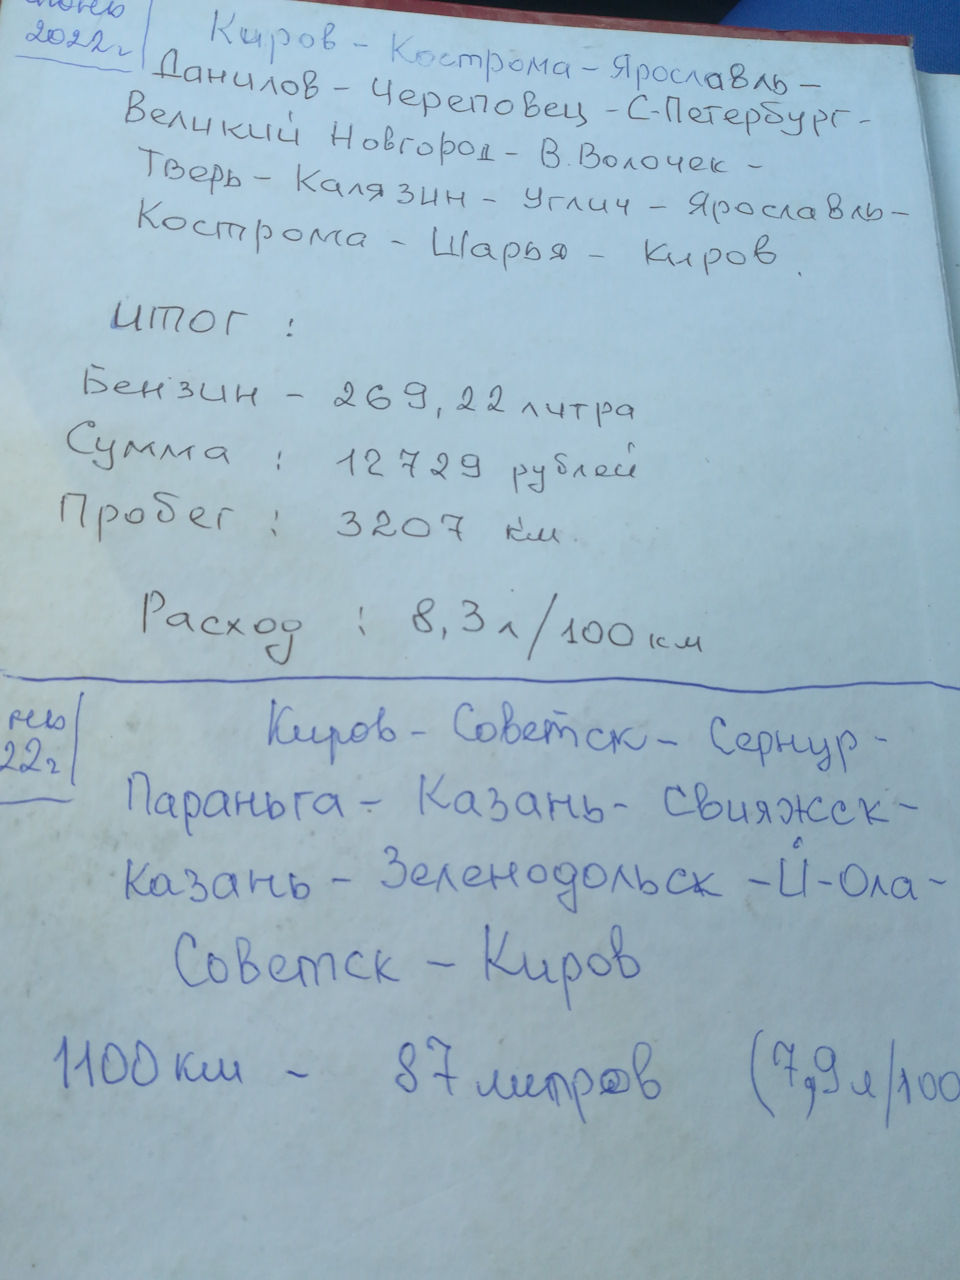 2022г
Киров - Кострома - Ярославль -
Данилов - Череповец - С-Петербург -
Великий Новгород - В.Волочек -
Тверь - Калязин - Углич - Ярославль -
Кострома - Шарья - Киров.
итог :
Бензин - 269,22 литра
Сумма : 12729 рублей
Пробег : 3207 км.
Расход : 8,3 л/100 км
22г
Киров - Советск - Сернур -
Параньга - Казань - Свияжск -
Казань - Зеленодольск - Й-Ола -
Советск - Киров
1100 км - 87 литров (7,9 л/100